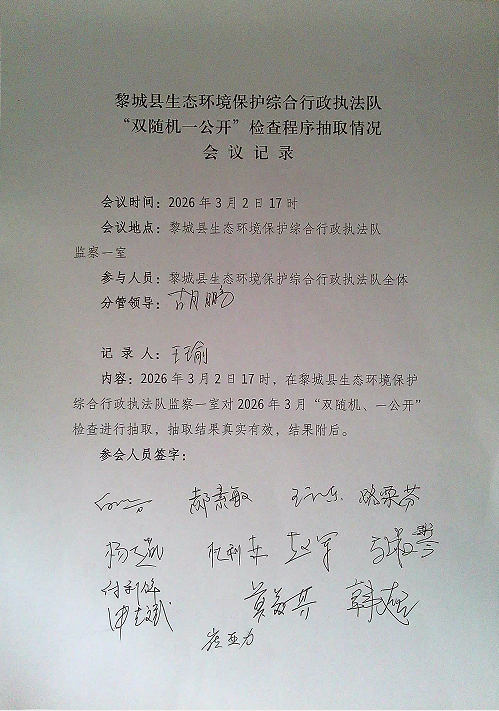 黎城县生态环境保护综合行政执法队
“双随机一公开”检查程序抽取情况
会议记录
会议时间：2026年3月2日17时
会议地点：黎城县生态环境保护综合行政执法队
监察一室
参与人员：黎城县生态环境保护综合行政执法队全体
分管领导：胡鹏
记录人：王瑜
内容：2026年3月2日17时，在黎城县生态环境保护
综合行政执法队监察一室对2026年3月“双随机、一公开”
检查进行抽取，抽取结果真实有效，结果附后。
参会人员签字：
郝素敏
杨 赵军
崔亚力